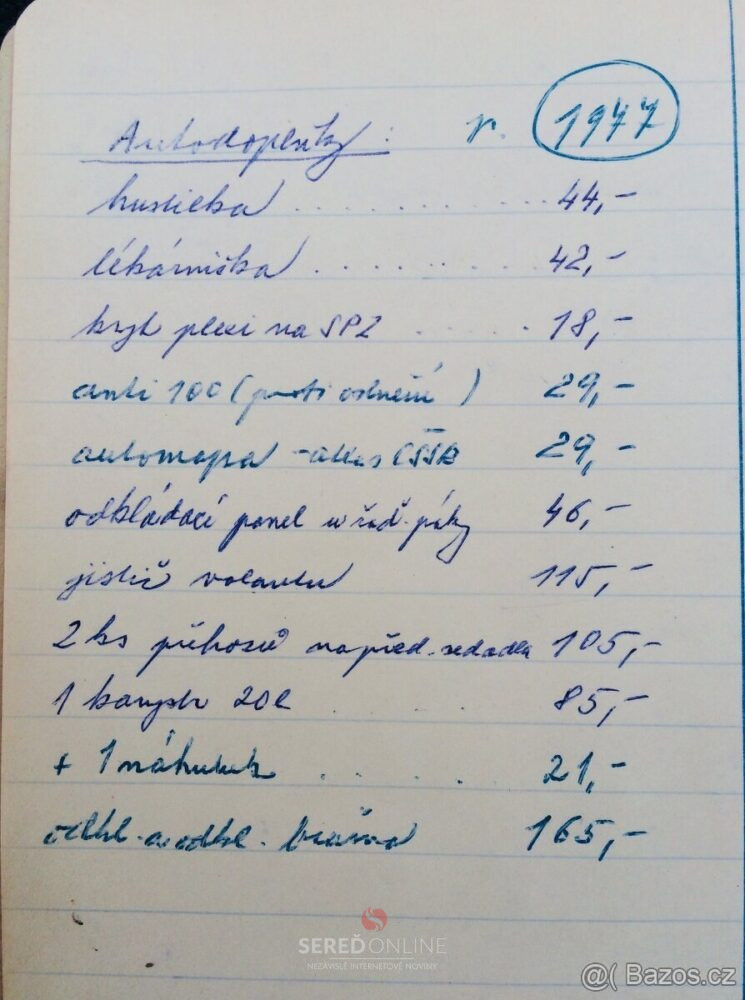 Autodoplňky: r. 1977
hustilka .......... 44,-
lékárnička ........ 42,-
kryt plexi na SPZ ..... 18,-
anti 100 (proti odření) 29,-
automapa - atlas ČSSR 29,-
odkládací panel u řad. páky 46,-
jistič volantu 115,-
2 ks přehozů na před. sedadla 105,-
1 kanystr 20l .. 85,-
+ 1 náhubek .... 21,-
odkl. a odkl. 165,-
SEREĎONLINE
NEZÁVISLÉ INTERNETOVÉ NOVINY
@( Bazos.cz